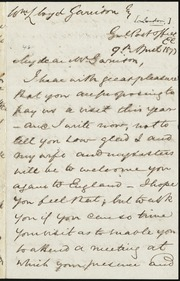 Wm Lloyd Garrison Esq
[London.]
Gen. Post Office
9th April 1877
My dear Mr Garrison,
I hear with great pleasure
that you are proposing to
pay us a visit this year
— and I write now, not to
tell you how glad I and
my wife and my sisters
will be to welcome you
again to England — I hope
you feel that; but to ask
you if you can so time
your visit as to enable you
to attend a meeting at
which your presence and